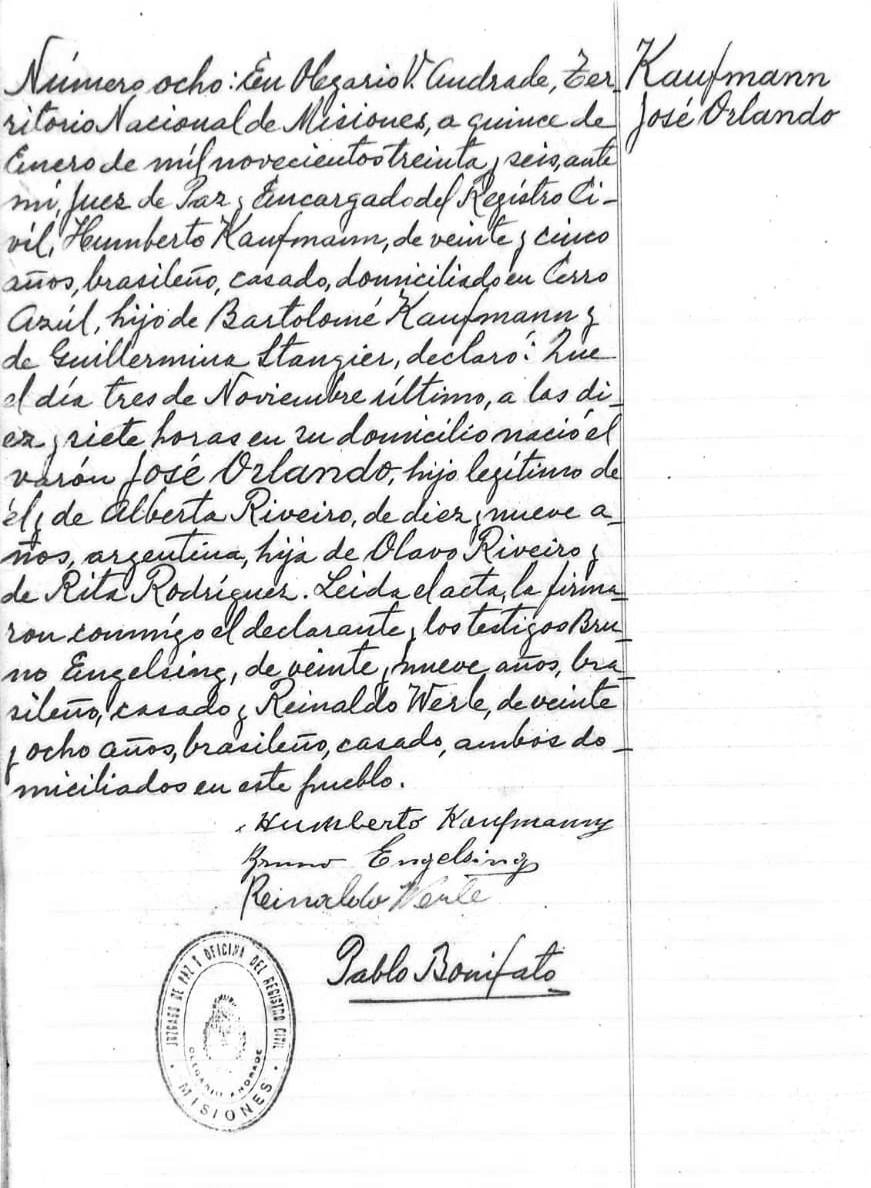 Número ocho: En Olegario V. Andrade, Ter-
ritorio Nacional de Misiones, a quince de
Enero de mil novecientos treinta y seis, ante
mí, Juez de Paz y Encargado del Registro Ci-
vil, Humberto Kaufmann, de veinte y cinco
años, brasileño, casado, domiciliado en Cerro
Azúl, hijo de Bartolomé Kaufmann y
de Guillermina Stangier, declaró: Que
el día tres de Noviembre último, a las di-
ez y siete horas en su domicilio nació el
varón José Orlando, hijo legítimo de
él y de Alberta Riveiro, de diez y nueve a-
ños, argentina, hija de Olavo Riveiro y
de Rita Rodríguez. Leida el acta, la firma-
ron conmigo el declarante y los testigos Bru-
no Engelsing, de veinte y nueve años, bra-
sileño, casado y Reinaldo Werle, de veinte
y ocho años, brasileño, casado, ambos do-
miciliados en este pueblo.
Humberto Kaufmann
Bruno Engelsing
Reinaldo Werle
Pablo Bonifato
Kaufmann
José Orlando
JUZGADO DE PAZ Y OFICINA DEL REGISTRO CIVIL
OLEGARIO ANDRADE
MISIONES